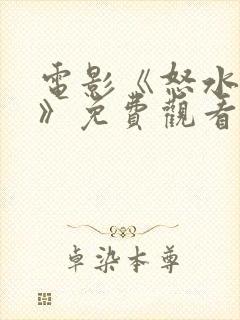 電影《怒水
》免費觀看
卓染本尊